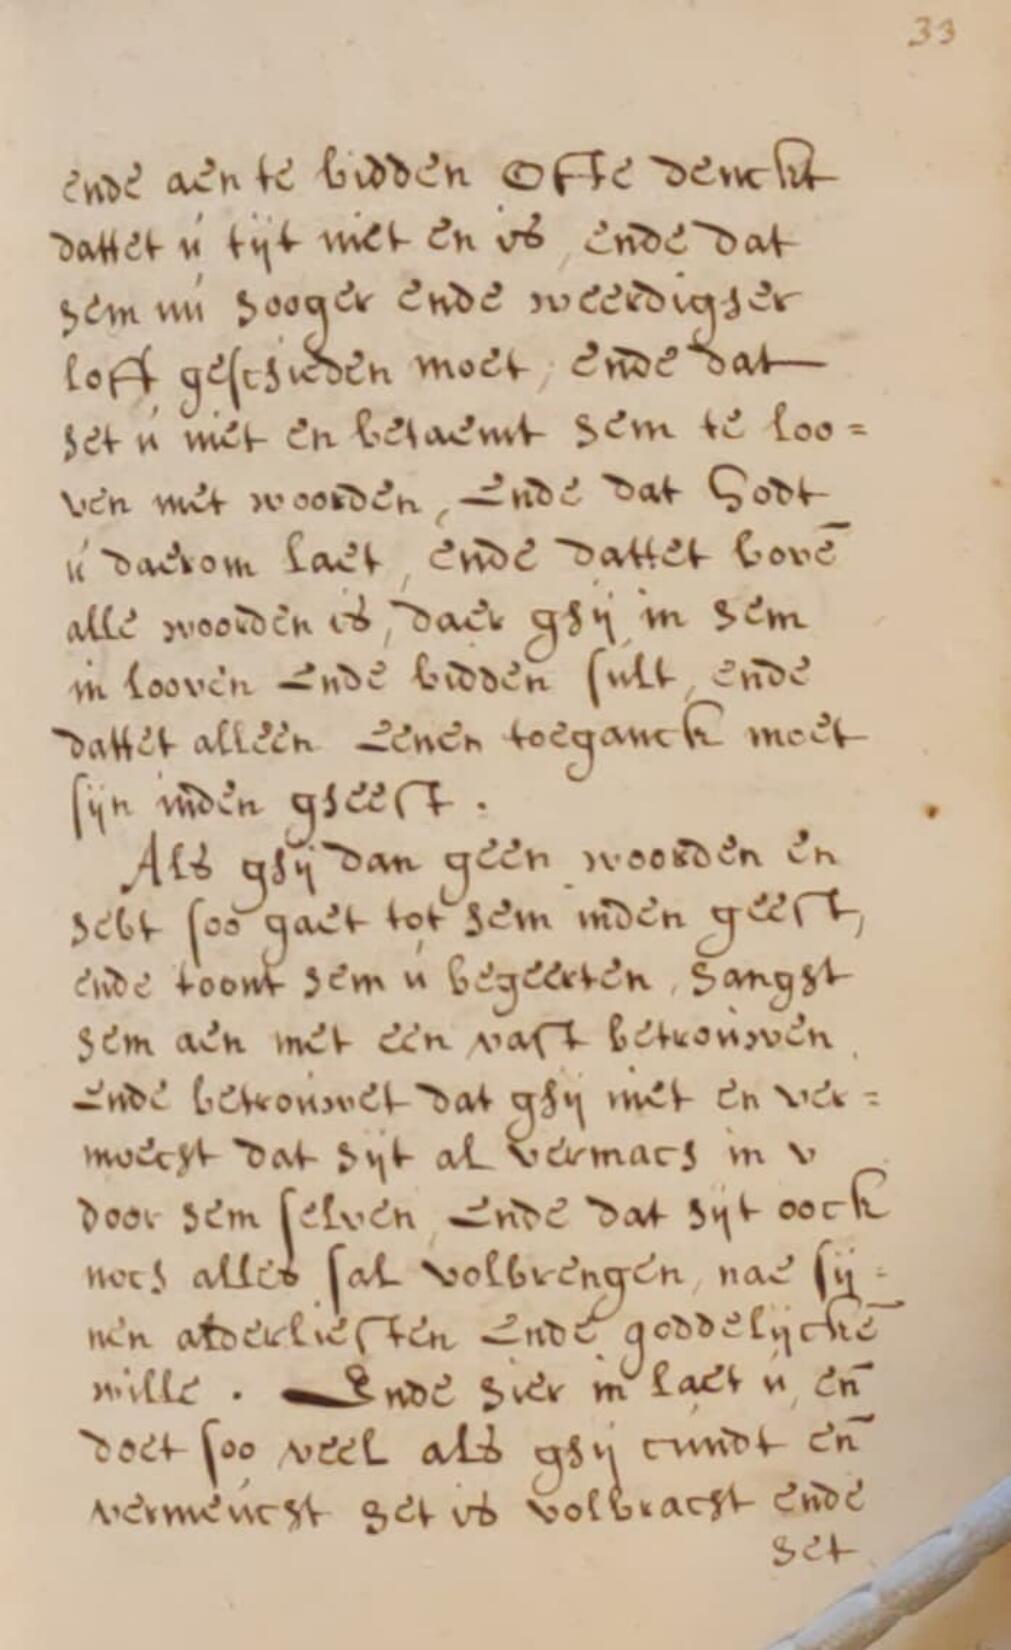 33
ende aen te bidden Ofte denckt
dattet ú tijt niet en is, ende dat
hem nú hooger ende weerdigher
loff geschieden moet, ende dat
het ú niet en betaemt hem te loo=
ven met woorden, Ende dat Godt
ú daerom laet, ende dattet bovē
alle woorden is, daer ghij in hem
in looven Ende bidden sult, ende
dattet alleen Eenen toeganck moet
sijn inden gheest.
Als ghij dan geen woorden en
hebt soo gaet tot hem inden geest,
ende toont hem ú begeerten, hanght
hem aen met een vast betroúwen,
Ende betroúwet dat ghij niet en ver=
moecht dat hijt al vermach in v
door hem selven, Ende dat hijt oock
noch alles sal volbrengen, nae sij=
nen alderliefsten Ende goddelijckē
wille. Ende hier in laet ú, en̄
doet soo veel als ghij cúndt en̄
verméúcht het is volbracht ende
het